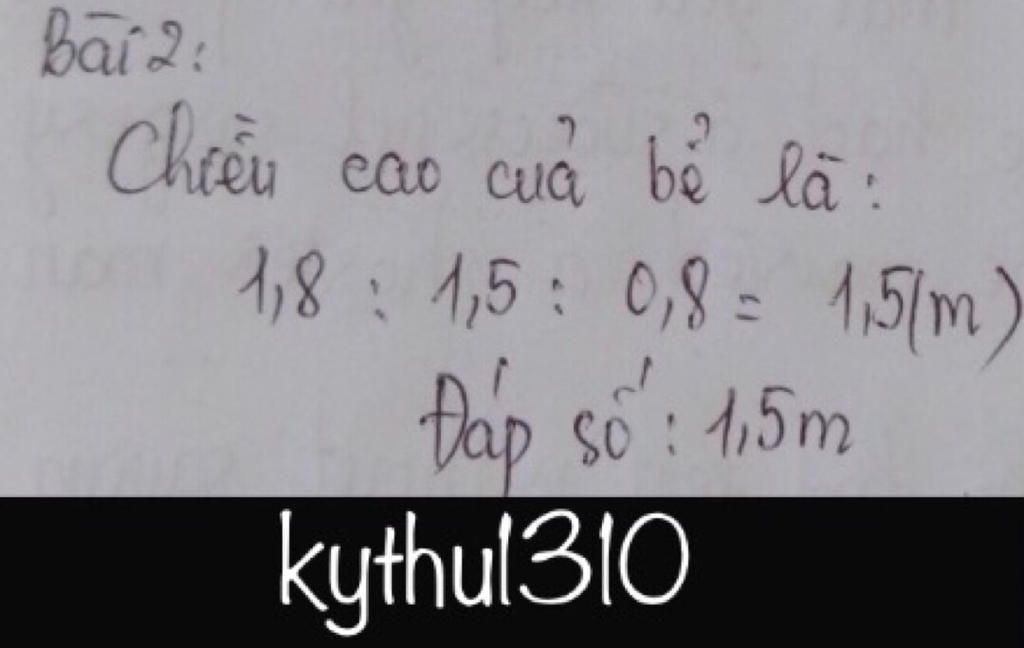 Bài 2:
Chiều cao của bể là:
1,8 : 1,5 : 0,8 = 1,5(m)
Đáp số : 1,5m
kythu1310